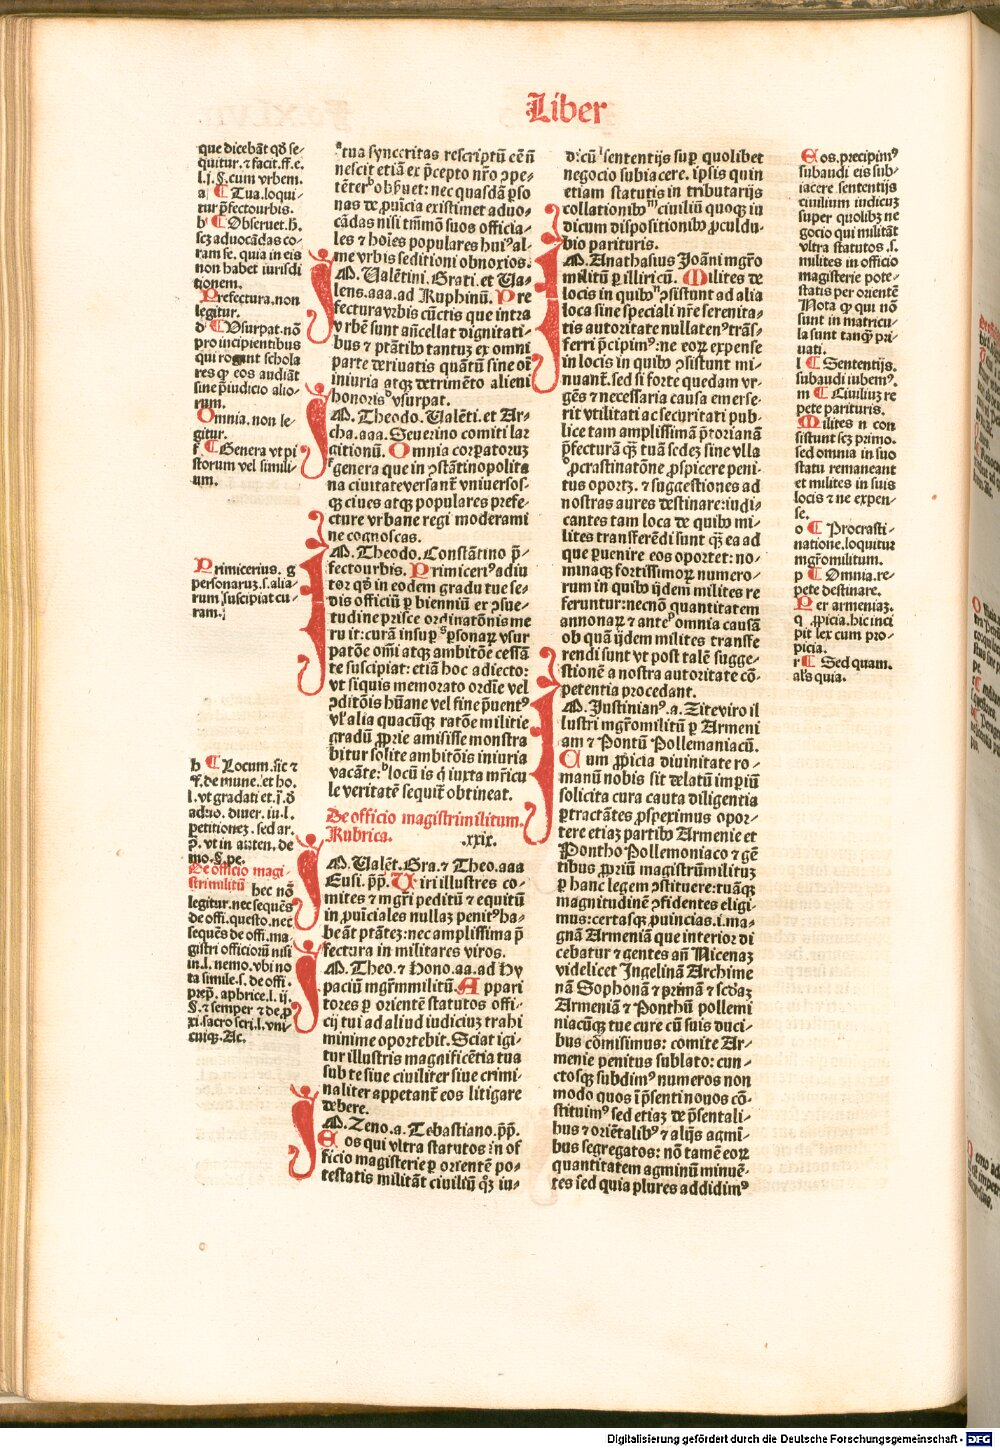 Liber
que dicebāt qđ se-
quitur. ⁊ facit. ff. e.
l. j. §. cum vrbem.
a ¶ Tua. loqui-
tur p̄fectourbis.
b ¶ Obseruet. h.
scꝫ aduocādas co-
ram se. quia in eis
non habet iurisdi
tionem.
Prefectura. non
legitur.
d ¶ Usurpat. nō
pro incipientibus
qui rogant schola
res ꝙ eos audiāt
sine p̄iudicio alio-
rum.
Omnia. non le-
gitur.
f ¶ Genera vt pi
storum vel simili
um.
Primicerius. g
personaruꝫ. s. alia-
rum suscipiat cu-
ram.
h ¶ Locum. sic ⁊
l. vt gradati et. j. ō
petitioneꝫ. sed ar.
p̄. vt in auten. de
mo. §. pe.
De officio magi-
strimilitū hec nō
legitur. nec sequēs
de offi. questo. nec
sequēs de offi. ma-
gistri officiorū nisi
in. l. nemo. vbi no
ta simile. s. de offi.
prep̄. aphrice. l. ij.
§. ⁊ semper ⁊ de. p̄
xi. sacro scri. l. vni-
cuiqꝫ. Ac.
tua synceritas rescriptū eē ñ
nescit etiā ex p̄cepto nr̄o ꝯpe-
tēter obp̄uet: nec quasdā ꝑso
nas de ꝓuīcia existimet aduo-
cādas nisi tm̄mō suos officia-
les ⁊ hoīes populares huiꝰ al-
me vrbis seditioni obnoxios.
M. Ualētini. Grati. et Ua-
lens. aaa. ad Ruphinū. Pre
fectura vrbis cūctis que intra
vrbē sunt añcellat dignitati-
bus ⁊ ptātibꝰ tantuꝫ ex omni
parte deriuatis quātū sine oī
iniuria atqꝫ detrimēto alieni
honoris vsurpat.
M. Theodo. Ualēti. et Ar-
cha. aaa. Seuerino comiti lar
gitionū. Omnia corpatoruꝫ
genera que in ꝯstātinopolita
na ciuitate versant̄ vniuersos-
qꝫ ciues atqꝫ populares prefe-
cture vrbane regi moderami
ne cognoscas.
M. Theodo. Constātino p̄-
fectourbis. Primiceriꝰ adiu
tor qꝫ in eodem gradu tue se-
dis officiū ꝑ bienniū ex ꝯsue-
tudine prisce ordinatōnis me
ru it: curā insuꝑ ꝑsonaꝝ vsur
patōe om̄i atqꝫ ambitōe cessā
te suscipiat: etiā hoc adiecto:
vt siquis memorato ordīe vel
ꝯditōis hūane vel fine p̄uentꝰ
vl̓ alia quacūqꝫ ratōe militie
gradū ꝓprie amisisse monstra
bitur solite ambitōis iniuria
vacāte: locū is q̇ iuxta mr̄icu
le veritatē sequit̄ obtineat.
De officio magistrimilitum.
Rubrica. .xxix.
M. Ualēt. Gra. ⁊ Theo. aaa
Eusi. p̄p̄. Uiri illustres co-
mites ⁊ mgr̄i peditū ⁊ equitū
in ꝓuīciales nullaꝫ penitꝰ ha-
beāt ptātez: nec amplissima p̄
fectura in militares viros.
M. Theo. ⁊ Hono. aa. ad Hy
paciū mgr̄mmilitū. Appari
tores ꝑ orientē statutos offi-
cij tui ad aliud iudiciuꝫ trahi
minime oportebit. Sciat igi-
tur illustris magnificētia tua
sub te siue ciuiliter siue crimi-
naliter appetant̄ eos litigare
debere.
M. Zeno. a. Tebastiano. p̄p̄.
Eos qui vltra statutos in of
ficio magisterie ꝑ orientē po-
testatis militāt ciuiliū qꝫ iu-
dicū sententijs suꝑ quolibet
negocio subiacere. ipsis quin
etiam statutis in tributarijs
collationibꝰ ciuiliū quoqꝫ iu
dicum dispositionibꝰ ꝓculdu-
bio parituris.
M. Anathasius Joāni mgr̄o
militū ꝑ illiricū. Milites de
locis in quibꝰ ꝯsistunt ad alia
loca sine speciali nr̄e serenita-
tis autoritate nullatenꝰ trās-
ferri p̄cipimꝰ: ne eoꝝ expense
in locis in quibꝰ ꝯsistunt mi-
nuant̄. sed si forte quedam vr-
gēs ⁊ necessaria causa emerse-
rit vtilitati ac securitati pub-
lice tam amplissimā p̄torianā
p̄fecturā qꝫ tuā sedeꝫ sine vlla
ꝓcrastinatōne. ꝓspicere peni-
tus oportꝫ. ⁊ suggestiones ad
nostras aures destinare: iudi-
cantes tam loca de quibꝰ mi-
lites transferēdi sunt qꝫ ea ad
que ꝑuenire eos oportet: no-
minaqꝫ fortissimoꝝ numero-
rum in quibꝰ ijdem milites re
feruntur: necnō quantitatem
annonaꝝ ⁊ ante omnia causā
ob quā ijdem milites transfe
rendi sunt vt post talē sugge-
stionē a nostra autoritate cō-
petentia procedant.
M. Justinianꝰ. a. Ziteviro il
lustri mgr̄omilitū ꝑ Armeni
am ⁊ Pontū Pollemaniacū.
Cum ꝓpicia diuinitate ro-
manū nobis sit delatū imperiū
solicita cura cauta diligentia
ꝑtractātes ꝓspeximus opor-
tere etiaꝫ partibꝰ Armenie et
Pontho Pollemoniaco ⁊ gē
tibus ꝓpriū magistrūmilituꝫ
ꝑ hanc legem ꝯstituere: tuāqꝫ
magnitudinē ꝯfidentes eligi-
mus: certasqꝫ ꝓuincias. i. ma-
gnā Armeniā que interior di
cebatur ⁊ gentes añ Nicenaꝫ
videlicet Ingelinā Archime
nā Sophonā ⁊ primā ⁊ scd̄aꝫ
Armeniā ⁊ Ponthū pollemi
niacūqꝫ tue cure cū suis duci-
bus cōmisimus: comite Ar-
menie penitus sublato: cun-
ctosqꝫ subdimꝰ numeros non
modo quos īp̄senti nouos cō-
stituimꝰ sed etiaꝫ de p̄sentali-
bus ⁊ oriētalibꝰ ⁊ alijs agmi-
bus segregatos: nō tamē eoꝝ
quantitatem agminū minuē-
tes sed quia plures addidimꝰ
Eos. precipimꝰ
subaudi eis sub-
iacere sententijs
ciuilium iudicuꝫ
super quolibꝫ ne
gocio qui militāt
vltra statutos. s.
milites in officio
magisterie pote-
statis per orientē
Nota ꝙ qui nō
sunt in matricu-
la sunt tanqꝫ pri-
uati.
l ¶ Sententijs.
subaudi iubemꝰ.
m ¶ Ciuiliuꝫ re
pete parituris.
Milites n con
sistunt scꝫ primo.
sed omnia in suo
statu remaneant
et milites in suis
locis ⁊ ne expen-
se.
o ¶ Procrasti-
natione. loquitur
mgr̄omilitum.
p ¶ Omnia. re-
pete destinare.
Per armeniaꝫ.
q ꝓpicia. hic inci
pit lex cum pro-
picia.
r ¶ Sed quam.
al's quia.
Digitalisierung gefördert durch die Deutsche Forschungsgemeinschaft - DFG